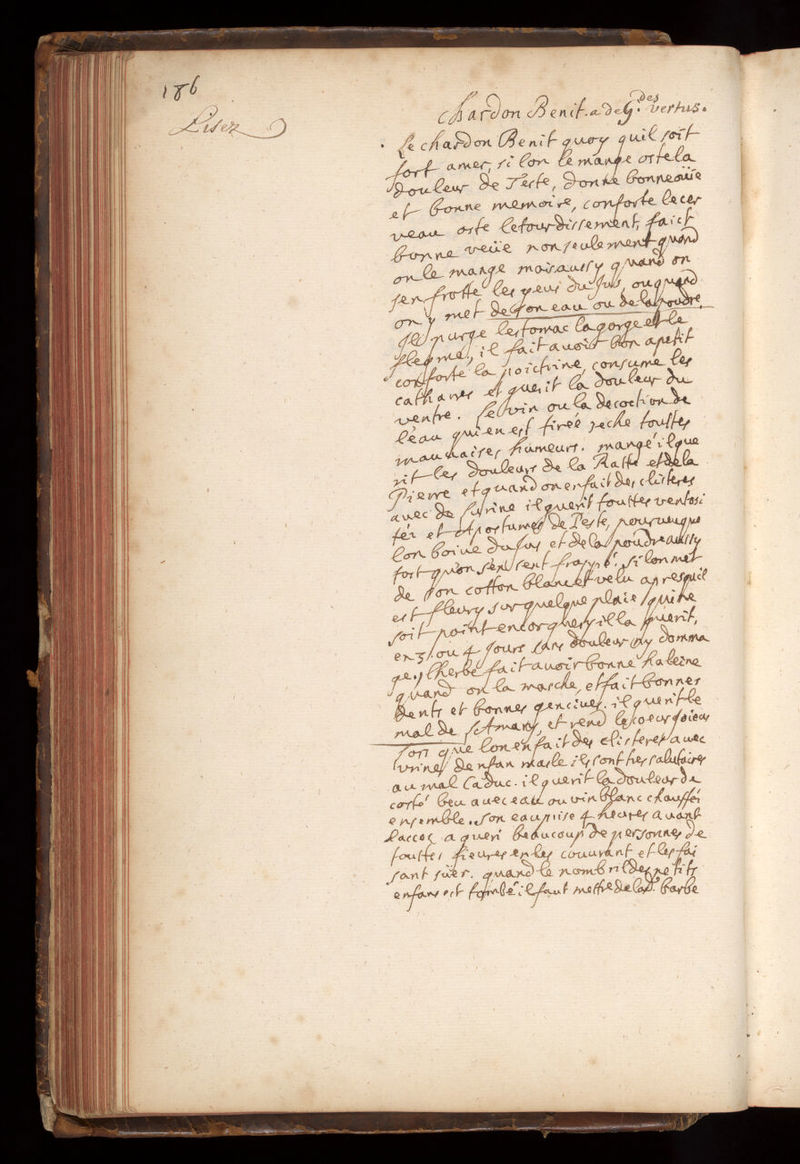 186
Lisez
Chardon Benit. a de G. des vertus.
le chardon Benit quoy quil soit
fort amer, si lon le mange oste la
douleur de Teste, donne bonne ouïe
et bonne memoire, conforte le cer
veau oste lestourdissement, faict
bonne veüe non seulement quand
on le mange mais aussy quand on
sen frotte les yeux du Jus, ou quand
on y met de son eau ou de la poudre,
Il purge lestomac la gorge et le
flegme, il fait avoir bon apetit
conforte la poictrine, consume les
catharres et guerit la douleur du
ventre. le vin ou la decoction de
léau qui en est tirée seche touttes
mauvaises humeurs. mangé il gue
rit les douleurs de la Ratte et de la
Pierre et quand on en fait des clisteres
avec de lurine il guerit touttes ventosi
tez et apostumes de Teste, pourveu que
lon boive du Jus et de la poudre aussy
tost quon sen sent frappé. si lon met
de son cotton blanc et velu apres quil
est fleury sur quelque plaie qui ne
soit point encor guery il la guerit,
en 3 ou 4 jours sans douleur ny domma
ge. lherbe fait avoir bonne haleine
quand on la masche, et fait bonnes
dents et bonnes gencives. il guerit le
mal de et rend le coeur joieux
son que lon en fait des clisteres avec
lurine den fan masle ils sont tres salutaires
au mal Caduc. il guerit la douleur de
costé beu avec eau ou vin blanc chaufféz
ensemble. son eau prise 4 heures avant
laccez a gueri beaucoup de personnes de
touttes fievres en les couvrant et les fai
sant suër. quand le nombril des petits
enfans est tombé il faut mettre de la d. barbe